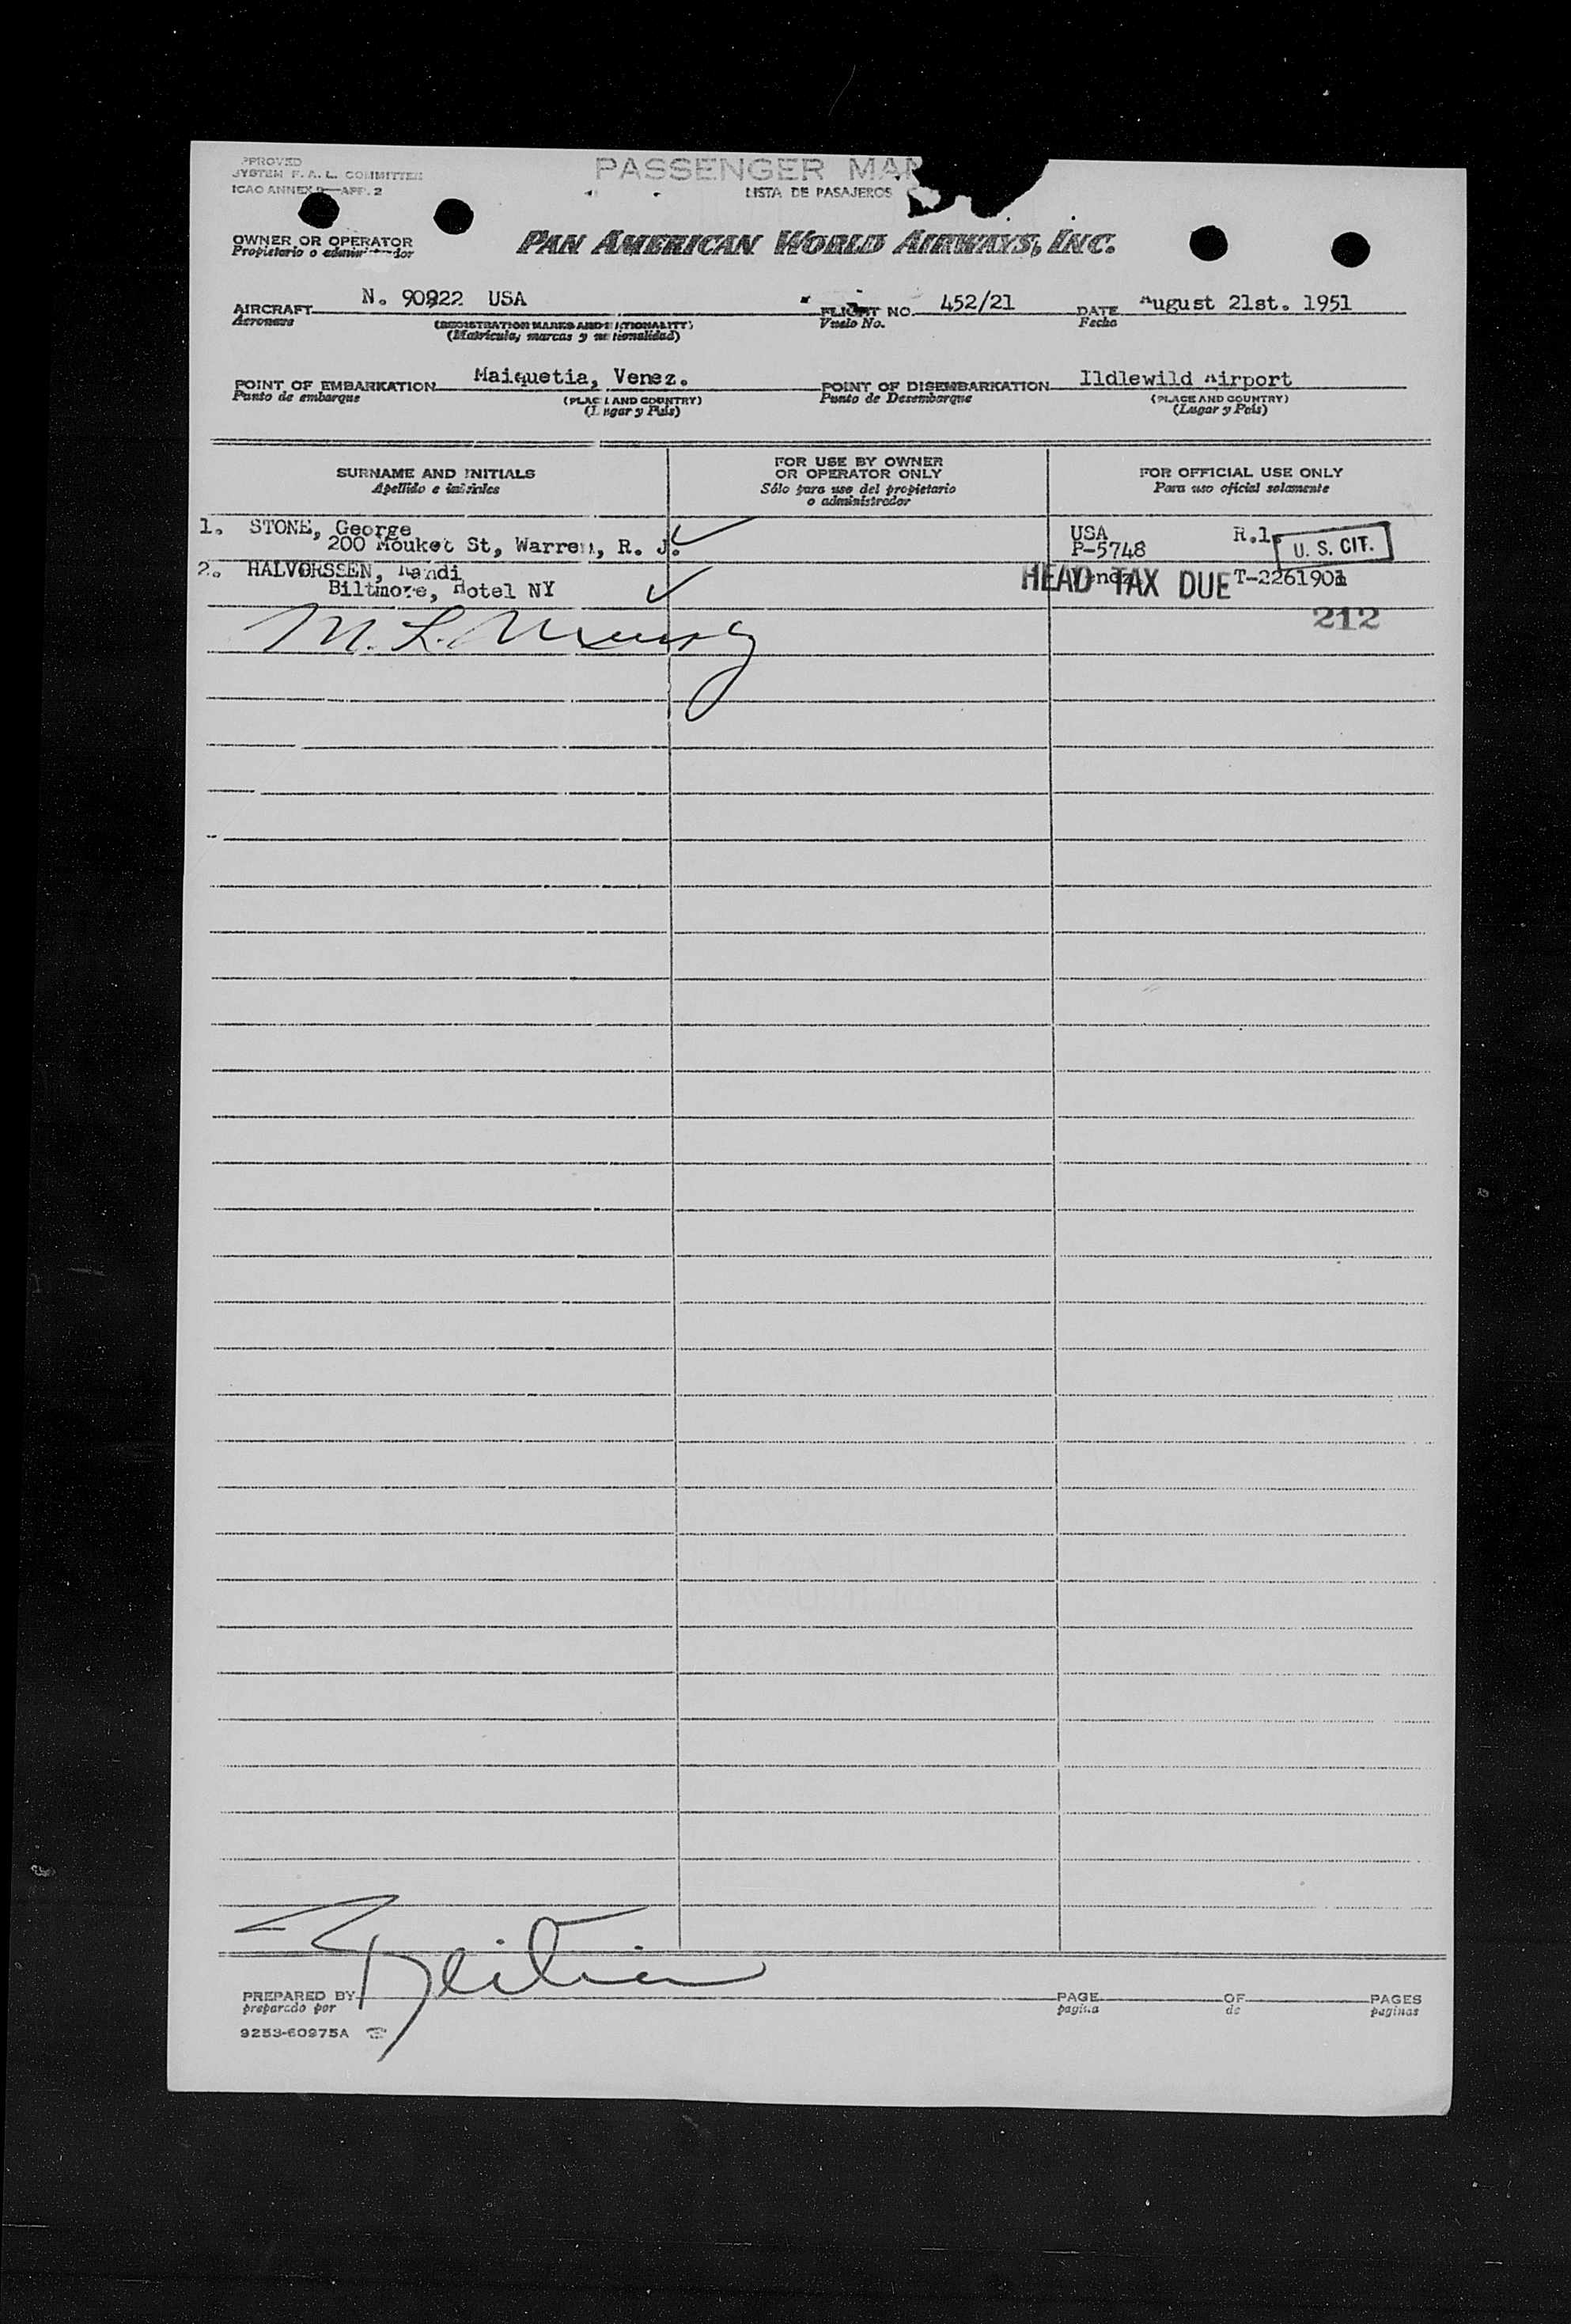 PPROVED
SYSTEM F. A. L. COMMITTEE
ICAO ANNEX 9—APP. 2
PASSENGER MAN
LISTA DE PASAJEROS
OWNER OR OPERATOR
Propietario o administrador
PAN AMERICAN WORLD AIRWAYS, INC.
AIRCRAFT N. 90922 USA FLIGHT NO. 452/21 DATE August 21st. 1951
Aeronave (REGISTRATION MARKS AND NATIONALITY) Vuelo No. Fecha
(Matrícula, marcas y nacionalidad)
POINT OF EMBARKATION Maiquetia, Venez. POINT OF DISEMBARKATION Ildlewild Airport
Punto de embarque (PLACE AND COUNTRY) Punto de Desembarque (PLACE AND COUNTRY)
(Lugar y País) (Lugar y País)
SURNAME AND INITIALS FOR USE BY OWNER OR OPERATOR ONLY FOR OFFICIAL USE ONLY
Apellido e iniciales Sólo para uso del propietario o administrador Para uso oficial solamente
1. STONE, George USA R.1.
200 Mouket St, Warren, R. J. P-5748 U. S. CIT.
2. HALVORSSEN, Randi Venez HEAD TAX DUE T-2261901
Biltmore, Hotel NY
212
M. L.
PREPARED BY PAGE OF PAGES
preparado por pagina de paginas
9253-60975A